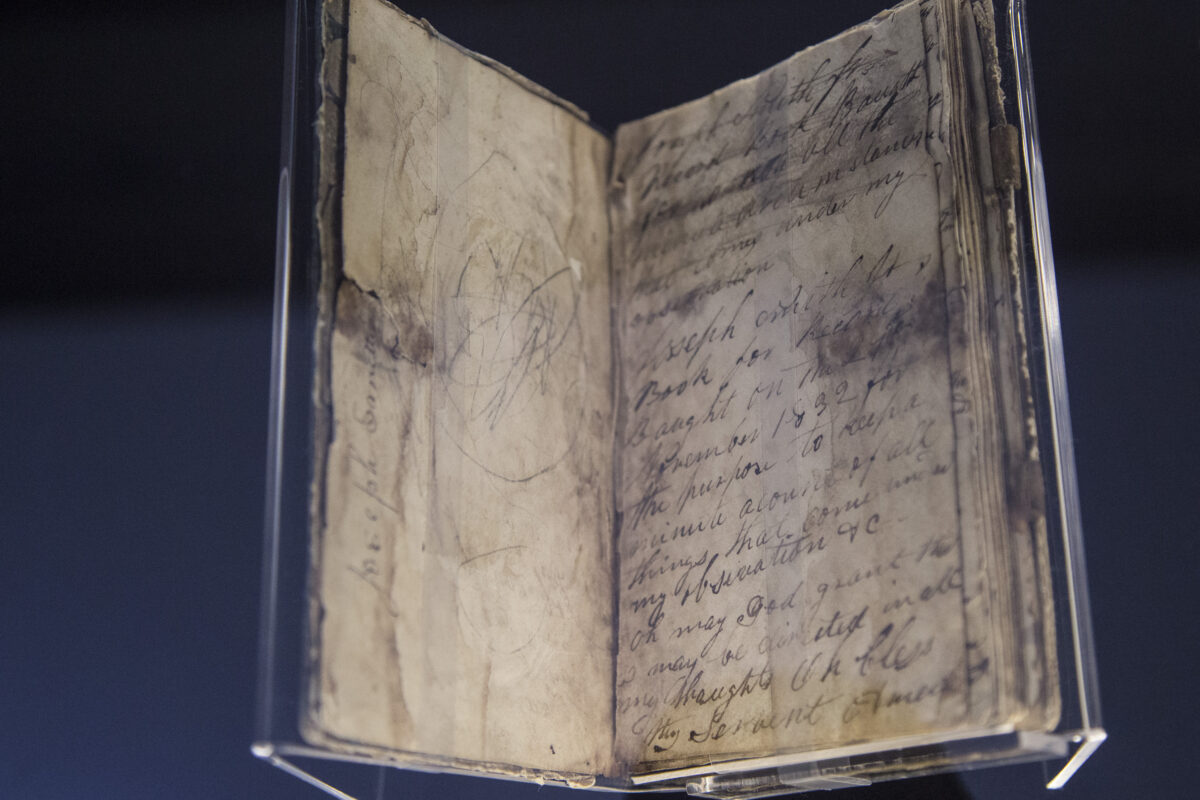 Joseph Smith
Joseph Smith Jrs
Record Book Baught
for to note all the
minute circumstances
that comes under my
observation
Joseph Smith Jr
Book for Record
Baught on the
November 1832 for
the purpose to keep a
minute acount of all
things that come under
my obseravation &c
oh may God grant that
I may be directed in all
my thaughts Oh bless
thy Servent Amen